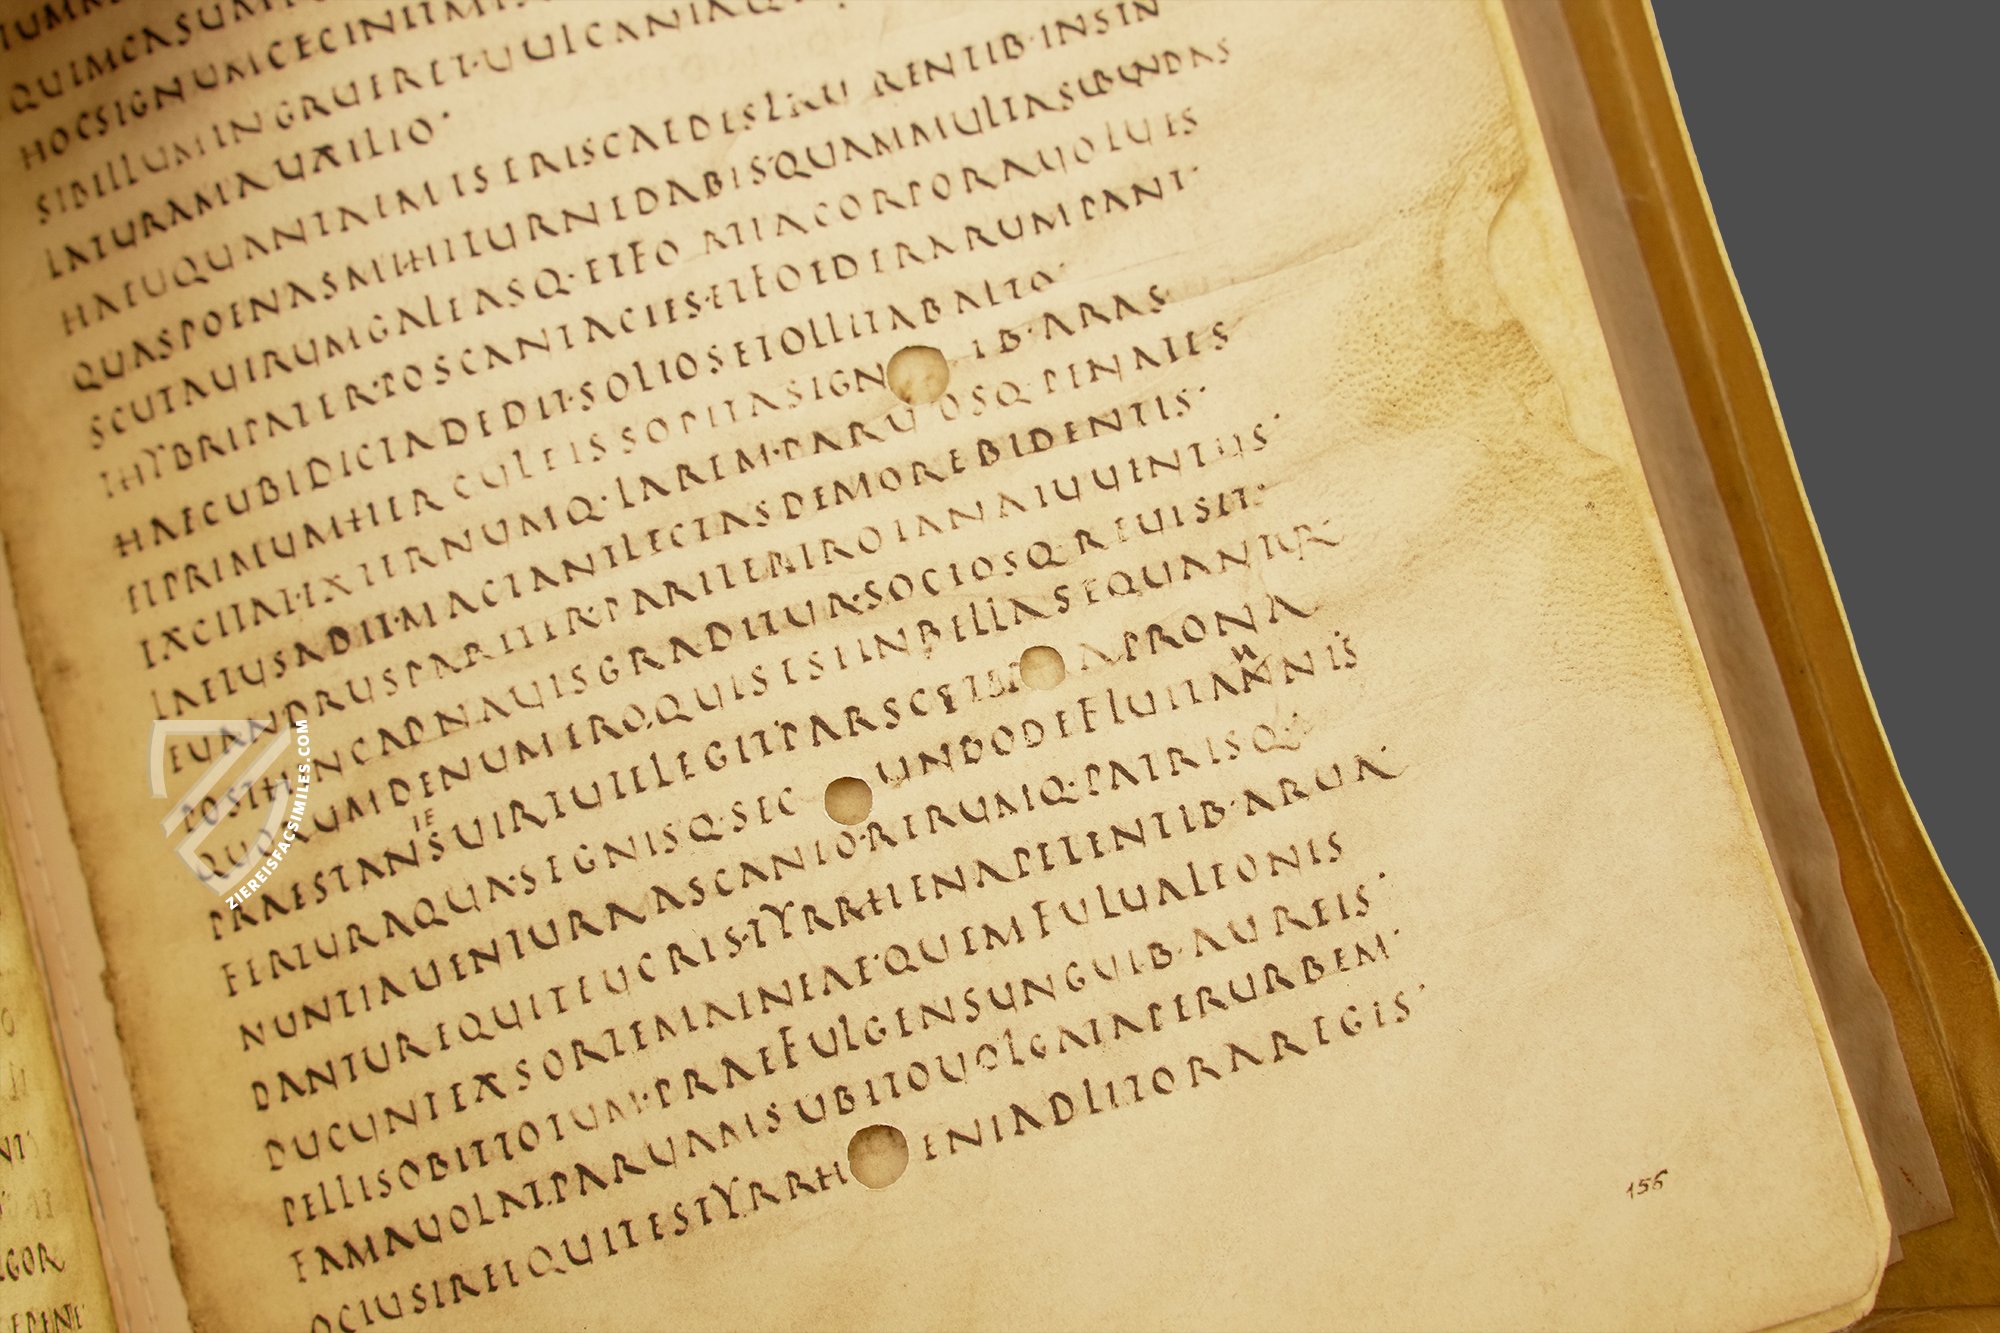 QUEMCASUM
HOCSIGNUMCECINITMIS
SIBELLUMINGRUERET·UULCANIAQ
LATURAMAUXILIO·
HAEUQUANTAEMISERISCAEDESLAU RENTIB·INSTN
QUASPOENASMIHITURNEDABIS·QUAMMULTASUBUNDAS
SCUTAUIRUMGALEASQ·ETFO RTIACORPORAUOLUES
THYBRIPATER·POSCANTACIES·ETFOEDERARUMPANT·
HAECUBIDICTADEDIT·SOLIOSETOLLITABALTO·
ETPRIMUMHERCULEISSOPITASIGN IB·ARAS
EXCITAT·EXTERNUMQ·LAREM·PARU OSQ·PENATES
LAETUSADIT·MACTANTLECTASDEMOREBIDENTIS·
EUANDRUSPARITER·PARITERTROIANAIUUENTUS·
POSTHINCADNAUISGRADITUR·SOCIOSQ·REUISIT·
QUORUMDENUMEROQUISESEINBELLASEQUANTUR·
PRAESTANSUIRTUTELEGIT·PARSCETER APRONA
TE
FERTURAQUA·SEGNISQ·SEC UNDODEFLUITAMNIS
NUNTIAUENTURAASCANIO·RERUMQ·PATRISQ·
DANTUREQUITEUCRIS·TYRRHENAPETENTIB·ARUA·
DUCUNTEXSORTEMAENEAE·QUEMFULUALEONIS
PELLISOBITTOTUM·PRAEFULGENSUNGUIB·AUREIS·
FAMAUOLAT·PARUAMSUBITOUOLGATAPERURBEM·
OCIUSIREEQUITESTYRRH ENIADLITORAREGIS·
156
ZIEREISFACSIMILES.COM